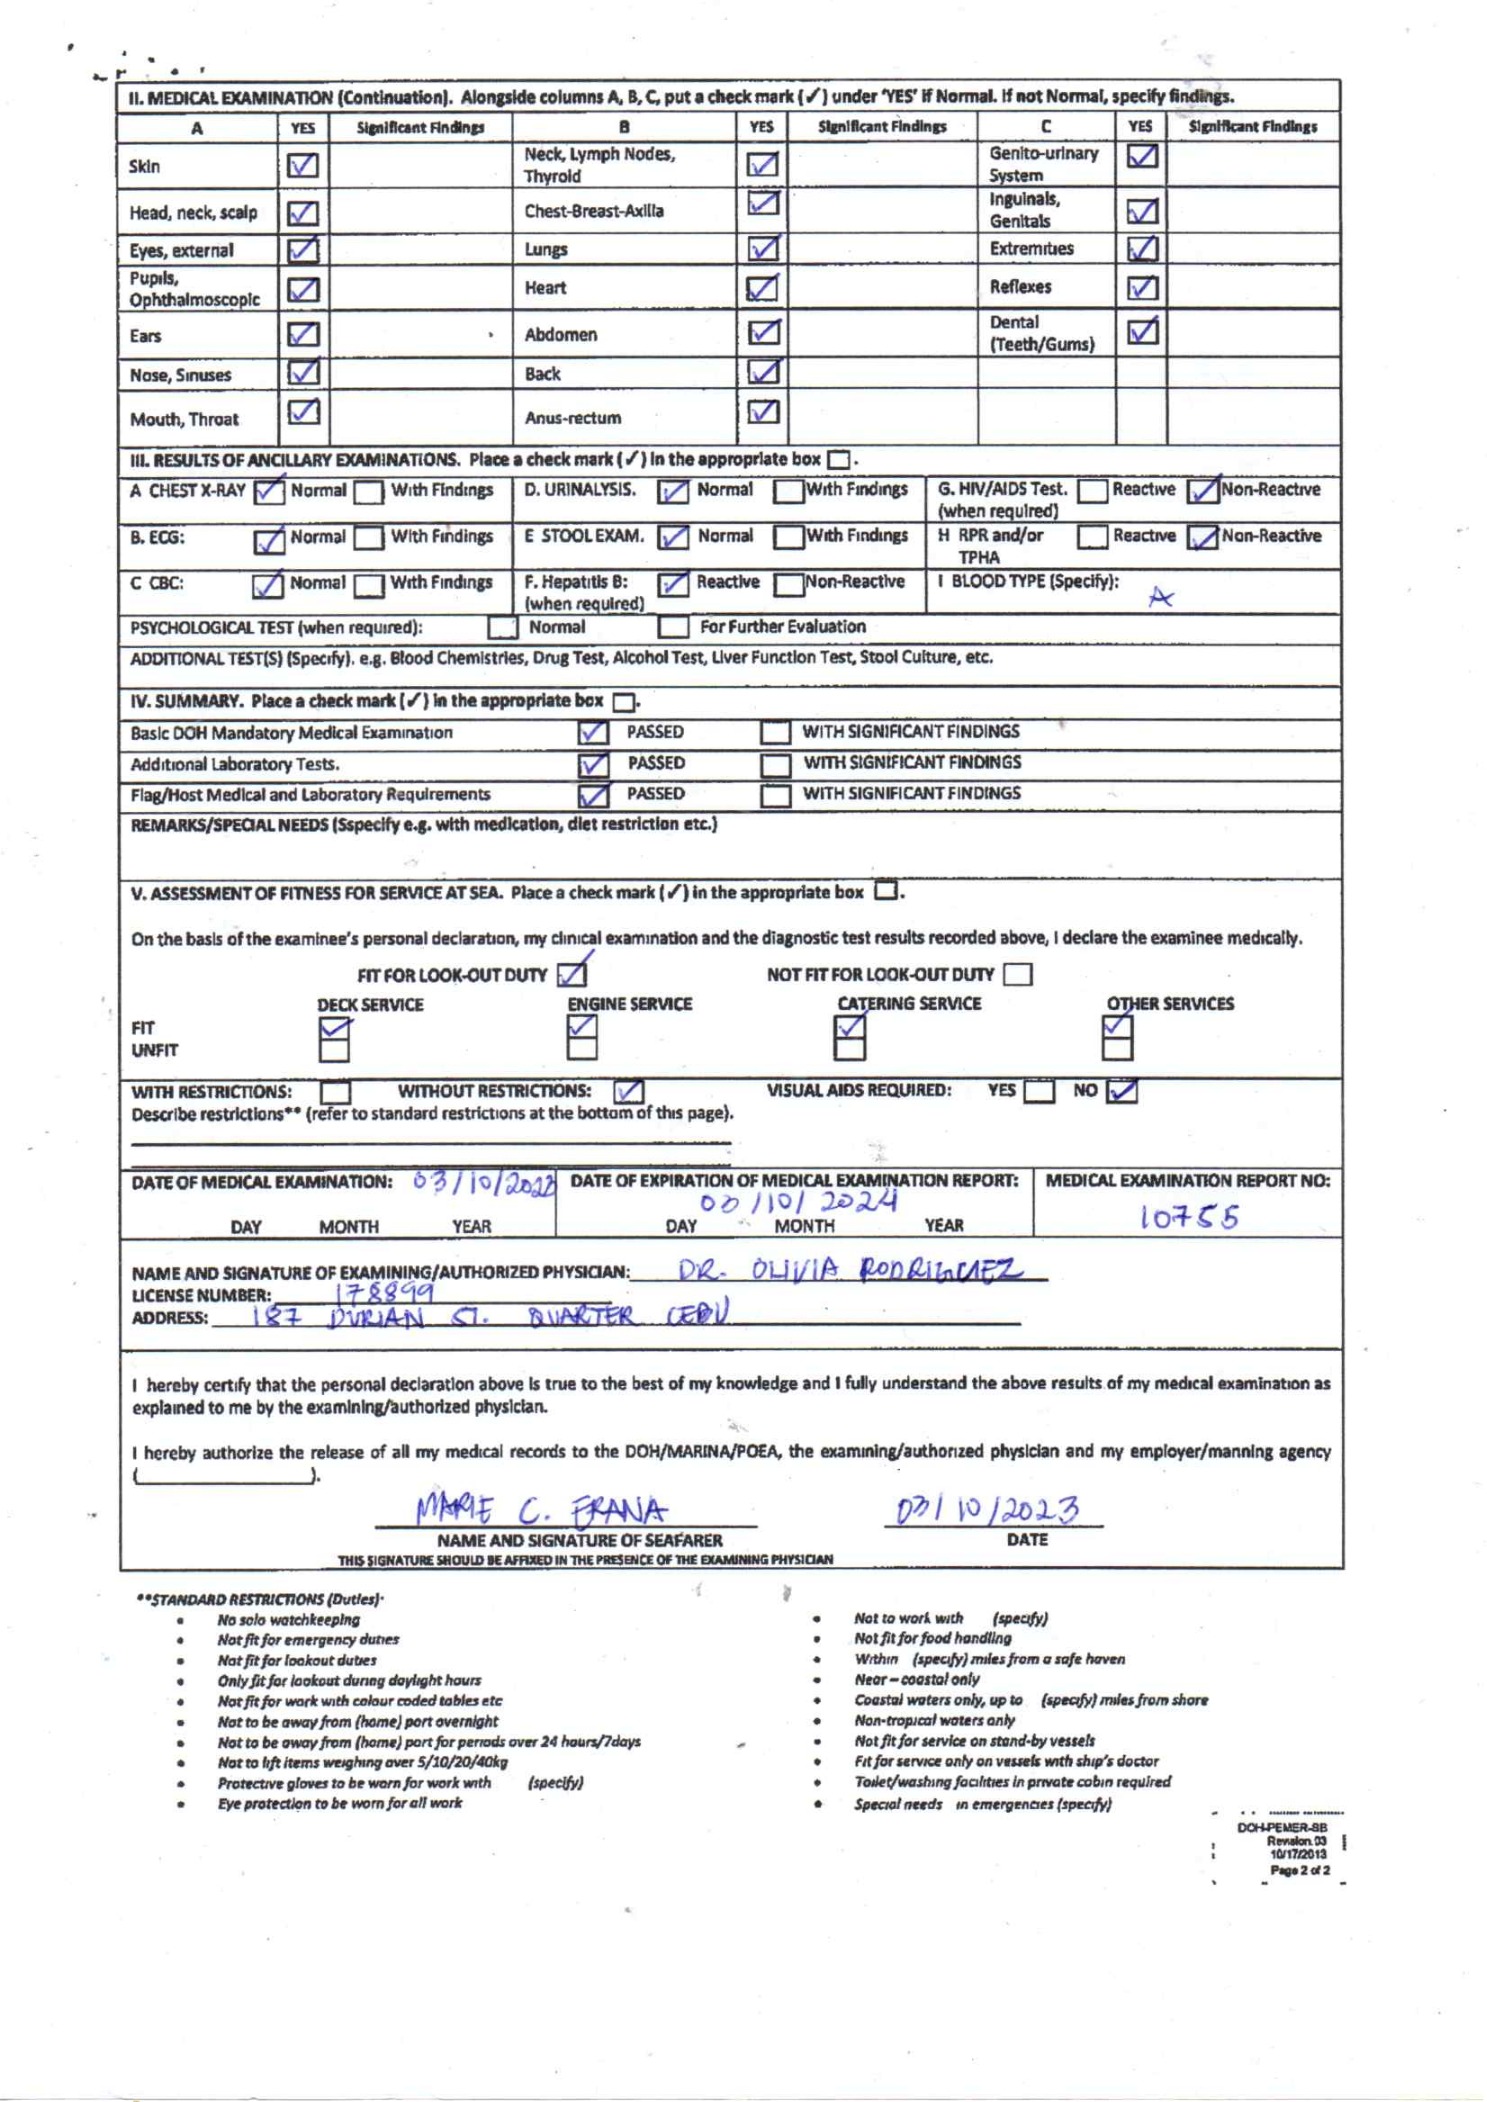 II. MEDICAL EXAMINATION (Continuation). Alongside columns A, B, C, put a check mark (✓) under 'YES' if Normal. If not Normal, specify findings.
A YES Significant Findings B YES Significant Findings C YES Significant Findings
Skin ✓ Neck, Lymph Nodes, Thyroid ✓ Genito-urinary System ✓
Head, neck, scalp ✓ Chest-Breast-Axilla ✓ Inguinals, Genitals ✓
Eyes, external ✓ Lungs ✓ Extremities ✓
Pupils, Ophthalmoscopic ✓ Heart ✓ Reflexes ✓
Ears ✓ Abdomen ✓ Dental (Teeth/Gums) ✓
Nose, Sinuses ✓ Back ✓
Mouth, Throat ✓ Anus-rectum ✓
III. RESULTS OF ANCILLARY EXAMINATIONS. Place a check mark (✓) in the appropriate box ☐.
A CHEST X-RAY ☑ Normal ☐ With Findings D. URINALYSIS. ☑ Normal ☐ With Findings G. HIV/AIDS Test. (when required) ☐ Reactive ☑ Non-Reactive
B. ECG: ☑ Normal ☐ With Findings E STOOL EXAM. ☑ Normal ☐ With Findings H RPR and/or TPHA ☐ Reactive ☑ Non-Reactive
C CBC: ☑ Normal ☐ With Findings F. Hepatitis B: (when required) ☑ Reactive ☐ Non-Reactive I BLOOD TYPE (Specify): A
PSYCHOLOGICAL TEST (when required): ☐ Normal ☐ For Further Evaluation
ADDITIONAL TEST(S) (Specify). e.g. Blood Chemistries, Drug Test, Alcohol Test, Liver Function Test, Stool Culture, etc.
IV. SUMMARY. Place a check mark (✓) in the appropriate box ☐.
Basic DOH Mandatory Medical Examination ☑ PASSED ☐ WITH SIGNIFICANT FINDINGS
Additional Laboratory Tests. ☑ PASSED ☐ WITH SIGNIFICANT FINDINGS
Flag/Host Medical and Laboratory Requirements ☑ PASSED ☐ WITH SIGNIFICANT FINDINGS
REMARKS/SPECIAL NEEDS (Sspecify e.g. with medication, diet restriction etc.)
V. ASSESSMENT OF FITNESS FOR SERVICE AT SEA. Place a check mark (✓) in the appropriate box ☐.
On the basis of the examinee's personal declaration, my clinical examination and the diagnostic test results recorded above, I declare the examinee medically.
FIT FOR LOOK-OUT DUTY ☑ NOT FIT FOR LOOK-OUT DUTY ☐
DECK SERVICE ENGINE SERVICE CATERING SERVICE OTHER SERVICES
FIT ☑ ☑ ☑ ☑
UNFIT ☐ ☐ ☐ ☐
WITH RESTRICTIONS: ☐ WITHOUT RESTRICTIONS: ☑ VISUAL AIDS REQUIRED: YES ☐ NO ☑
Describe restrictions** (refer to standard restrictions at the bottom of this page).
DATE OF MEDICAL EXAMINATION: 03/10/2023 DATE OF EXPIRATION OF MEDICAL EXAMINATION REPORT: MEDICAL EXAMINATION REPORT NO:
03/10/2024 10755
DAY MONTH YEAR DAY MONTH YEAR
NAME AND SIGNATURE OF EXAMINING/AUTHORIZED PHYSICIAN: DR. OLIVIA RODRIGUEZ
LICENSE NUMBER: 178899
ADDRESS: 187 DURIAN ST. QUARTER CEBU
I hereby certify that the personal declaration above is true to the best of my knowledge and I fully understand the above results of my medical examination as
explained to me by the examining/authorized physician.
I hereby authorize the release of all my medical records to the DOH/MARINA/POEA, the examining/authorized physician and my employer/manning agency
(____________).
MARIE C. ERANA 03/10/2023
NAME AND SIGNATURE OF SEAFARER DATE
THIS SIGNATURE SHOULD BE AFFIXED IN THE PRESENCE OF THE EXAMINING PHYSICIAN
**STANDARD RESTRICTIONS (Duties):
• No solo watchkeeping
• Not fit for emergency duties
• Not fit for lookout duties
• Only fit for lookout during daylight hours
• Not fit for work with colour coded tables etc
• Not to be away from (home) port overnight
• Not to be away from (home) port for periods over 24 hours/7days
• Not to lift items weighing over 5/10/20/40kg
• Protective gloves to be worn for work with (specify)
• Eye protection to be worn for all work
• Not to work with (specify)
• Not fit for food handling
• Within (specify) miles from a safe haven
• Near – coastal only
• Coastal waters only, up to (specify) miles from shore
• Non-tropical waters only
• Not fit for service on stand-by vessels
• Fit for service only on vessels with ship's doctor
• Toilet/washing facilities in private cabin required
• Special needs in emergencies (specify)
DOH-PEMER-SB
Revision.03
10/17/2013
Page 2 of 2